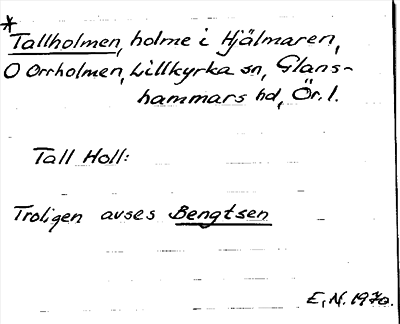 *
Tallholmen, holme i Hjälmaren,
O Orrholmen, Lillkyrka sn, Glans-
hammars hd, Ör. l.
Tall Holl:
Troligen avses Bengtsen
E. N. 1970.